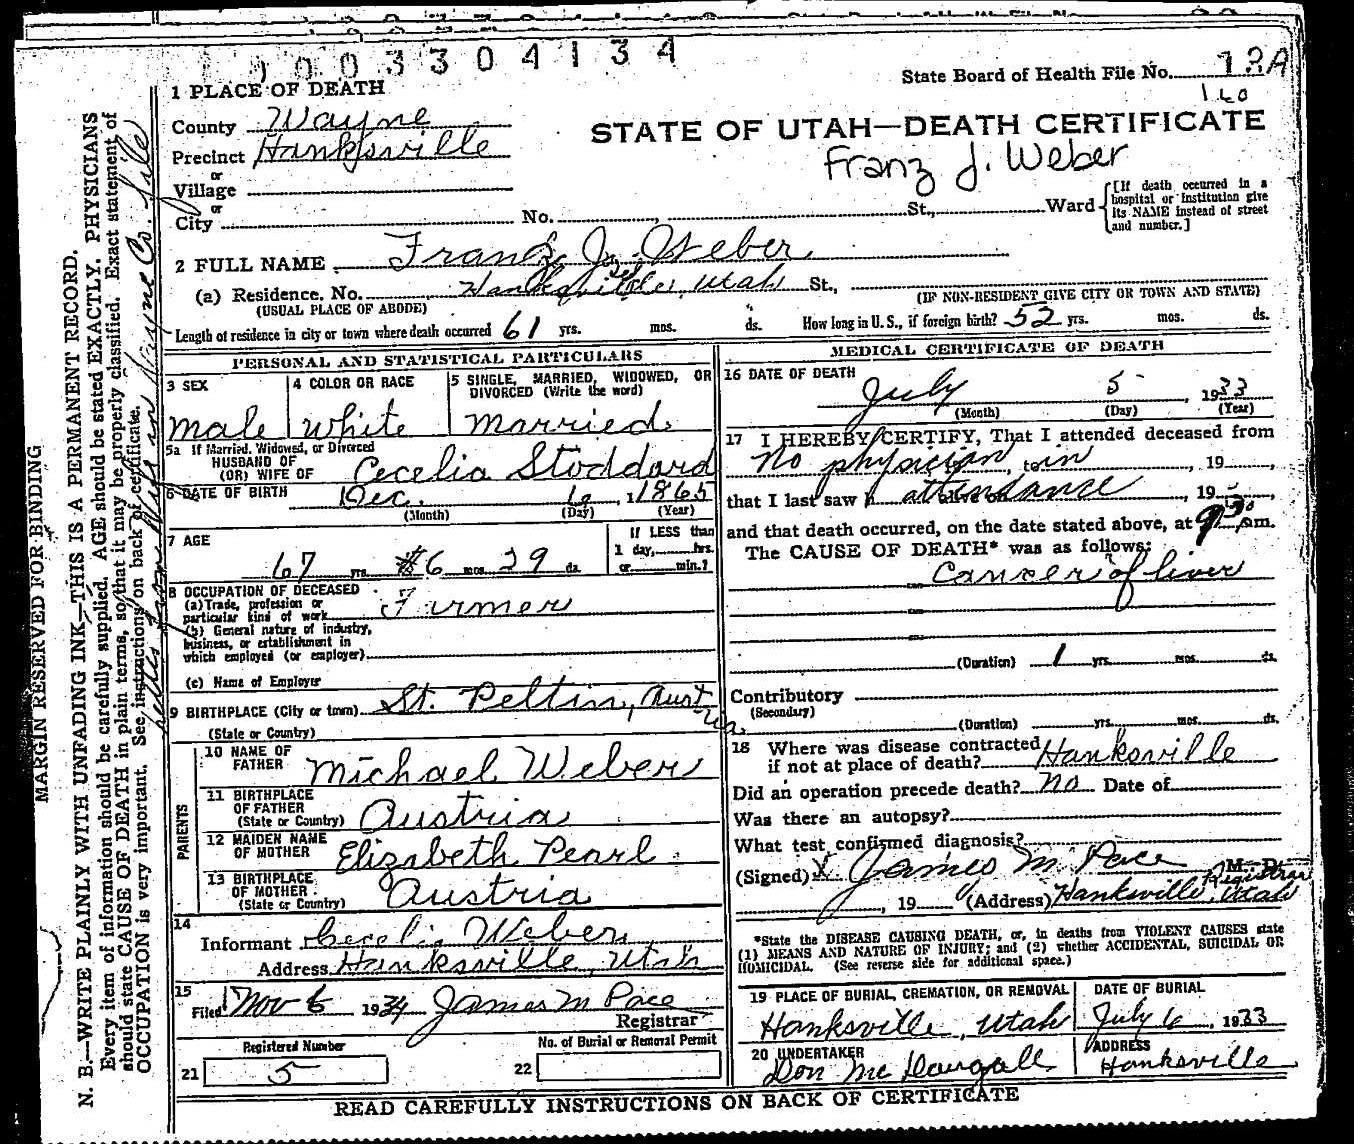 1003304134
State Board of Health File No.
1 PLACE OF DEATH
County Wayne
STATE OF UTAH—DEATH CERTIFICATE
Precinct Hanksville
Franz J. Weber
or
Village
or
City No. St., Ward
[If death occurred in a
hospital or institution give
its NAME instead of street
and number.]
2 FULL NAME Franz J. Weber
(a) Residence. No. Hanksville, Utah St.,
(USUAL PLACE OF ABODE) (IF NON-RESIDENT GIVE CITY OR TOWN AND STATE)
Length of residence in city or town where death occurred 61 yrs. mos. ds. How long in U. S., if foreign birth? 52 yrs. mos. ds.
PERSONAL AND STATISTICAL PARTICULARS
3 SEX 4 COLOR OR RACE 5 SINGLE, MARRIED, WIDOWED, OR
DIVORCED (Write the word)
male white married
5a If Married, Widowed, or Divorced
HUSBAND OF
(OR) WIFE OF Cecelia Stoddard
6 DATE OF BIRTH Dec. 6, 1865
(Month) (Day) (Year)
7 AGE If LESS than
1 day, hrs.
67 yrs. 6 mos. 29 ds. or min.?
8 OCCUPATION OF DECEASED
(a) Trade, profession or
particular kind of work Farmer
(b) General nature of industry,
business, or establishment in
which employed (or employer)
(c) Name of Employer
9 BIRTHPLACE (City or town) St. Peltin, Austria
(State or Country)
PARENTS
10 NAME OF
FATHER Michael Weber
11 BIRTHPLACE
OF FATHER
(State or Country) Austria
12 MAIDEN NAME
OF MOTHER Elizabeth Pearl
13 BIRTHPLACE
OF MOTHER
(State or Country) Austria
14
Informant Cecelia Weber
Address Hanksville, Utah
15
Filed Nov 6 1934 James M Pace
Registrar
Registered Number No. of Burial or Removal Permit
21 5 22
MEDICAL CERTIFICATE OF DEATH
16 DATE OF DEATH
July 5, 1933
(Month) (Day) (Year)
17 I HEREBY CERTIFY, That I attended deceased from
No physician, to in, 19
that I last saw h attendance, 19
and that death occurred, on the date stated above, at 9 30 pm.
The CAUSE OF DEATH* was as follows:
Cancer of liver
(Duration) 1 yrs. mos. ds.
Contributory
(Secondary)
(Duration) yrs. mos. ds.
18 Where was disease contracted
if not at place of death? Hanksville
Did an operation precede death? no Date of
Was there an autopsy?
What test confirmed diagnosis?
(Signed) X James M. Pace M. D.
Registrar
, 19 (Address) Hanksville, Utah
*State the DISEASE CAUSING DEATH, or, in deaths from VIOLENT CAUSES state
(1) MEANS AND NATURE OF INJURY; and (2) whether ACCIDENTAL, SUICIDAL OR
HOMICIDAL. (See reverse side for additional space.)
19 PLACE OF BURIAL, CREMATION, OR REMOVAL DATE OF BURIAL
Hanksville, Utah July 6, 1933
20 UNDERTAKER ADDRESS
Don McDougall Hanksville
READ CAREFULLY INSTRUCTIONS ON BACK OF CERTIFICATE
MARGIN RESERVED FOR BINDING
N. B.—WRITE PLAINLY WITH UNFADING INK—THIS IS A PERMANENT RECORD.
Every item of information should be carefully supplied. AGE should be stated EXACTLY. PHYSICIANS
should state CAUSE OF DEATH in plain terms, so that it may be properly classified. Exact statement of
OCCUPATION is very important. See instructions on back of certificate.